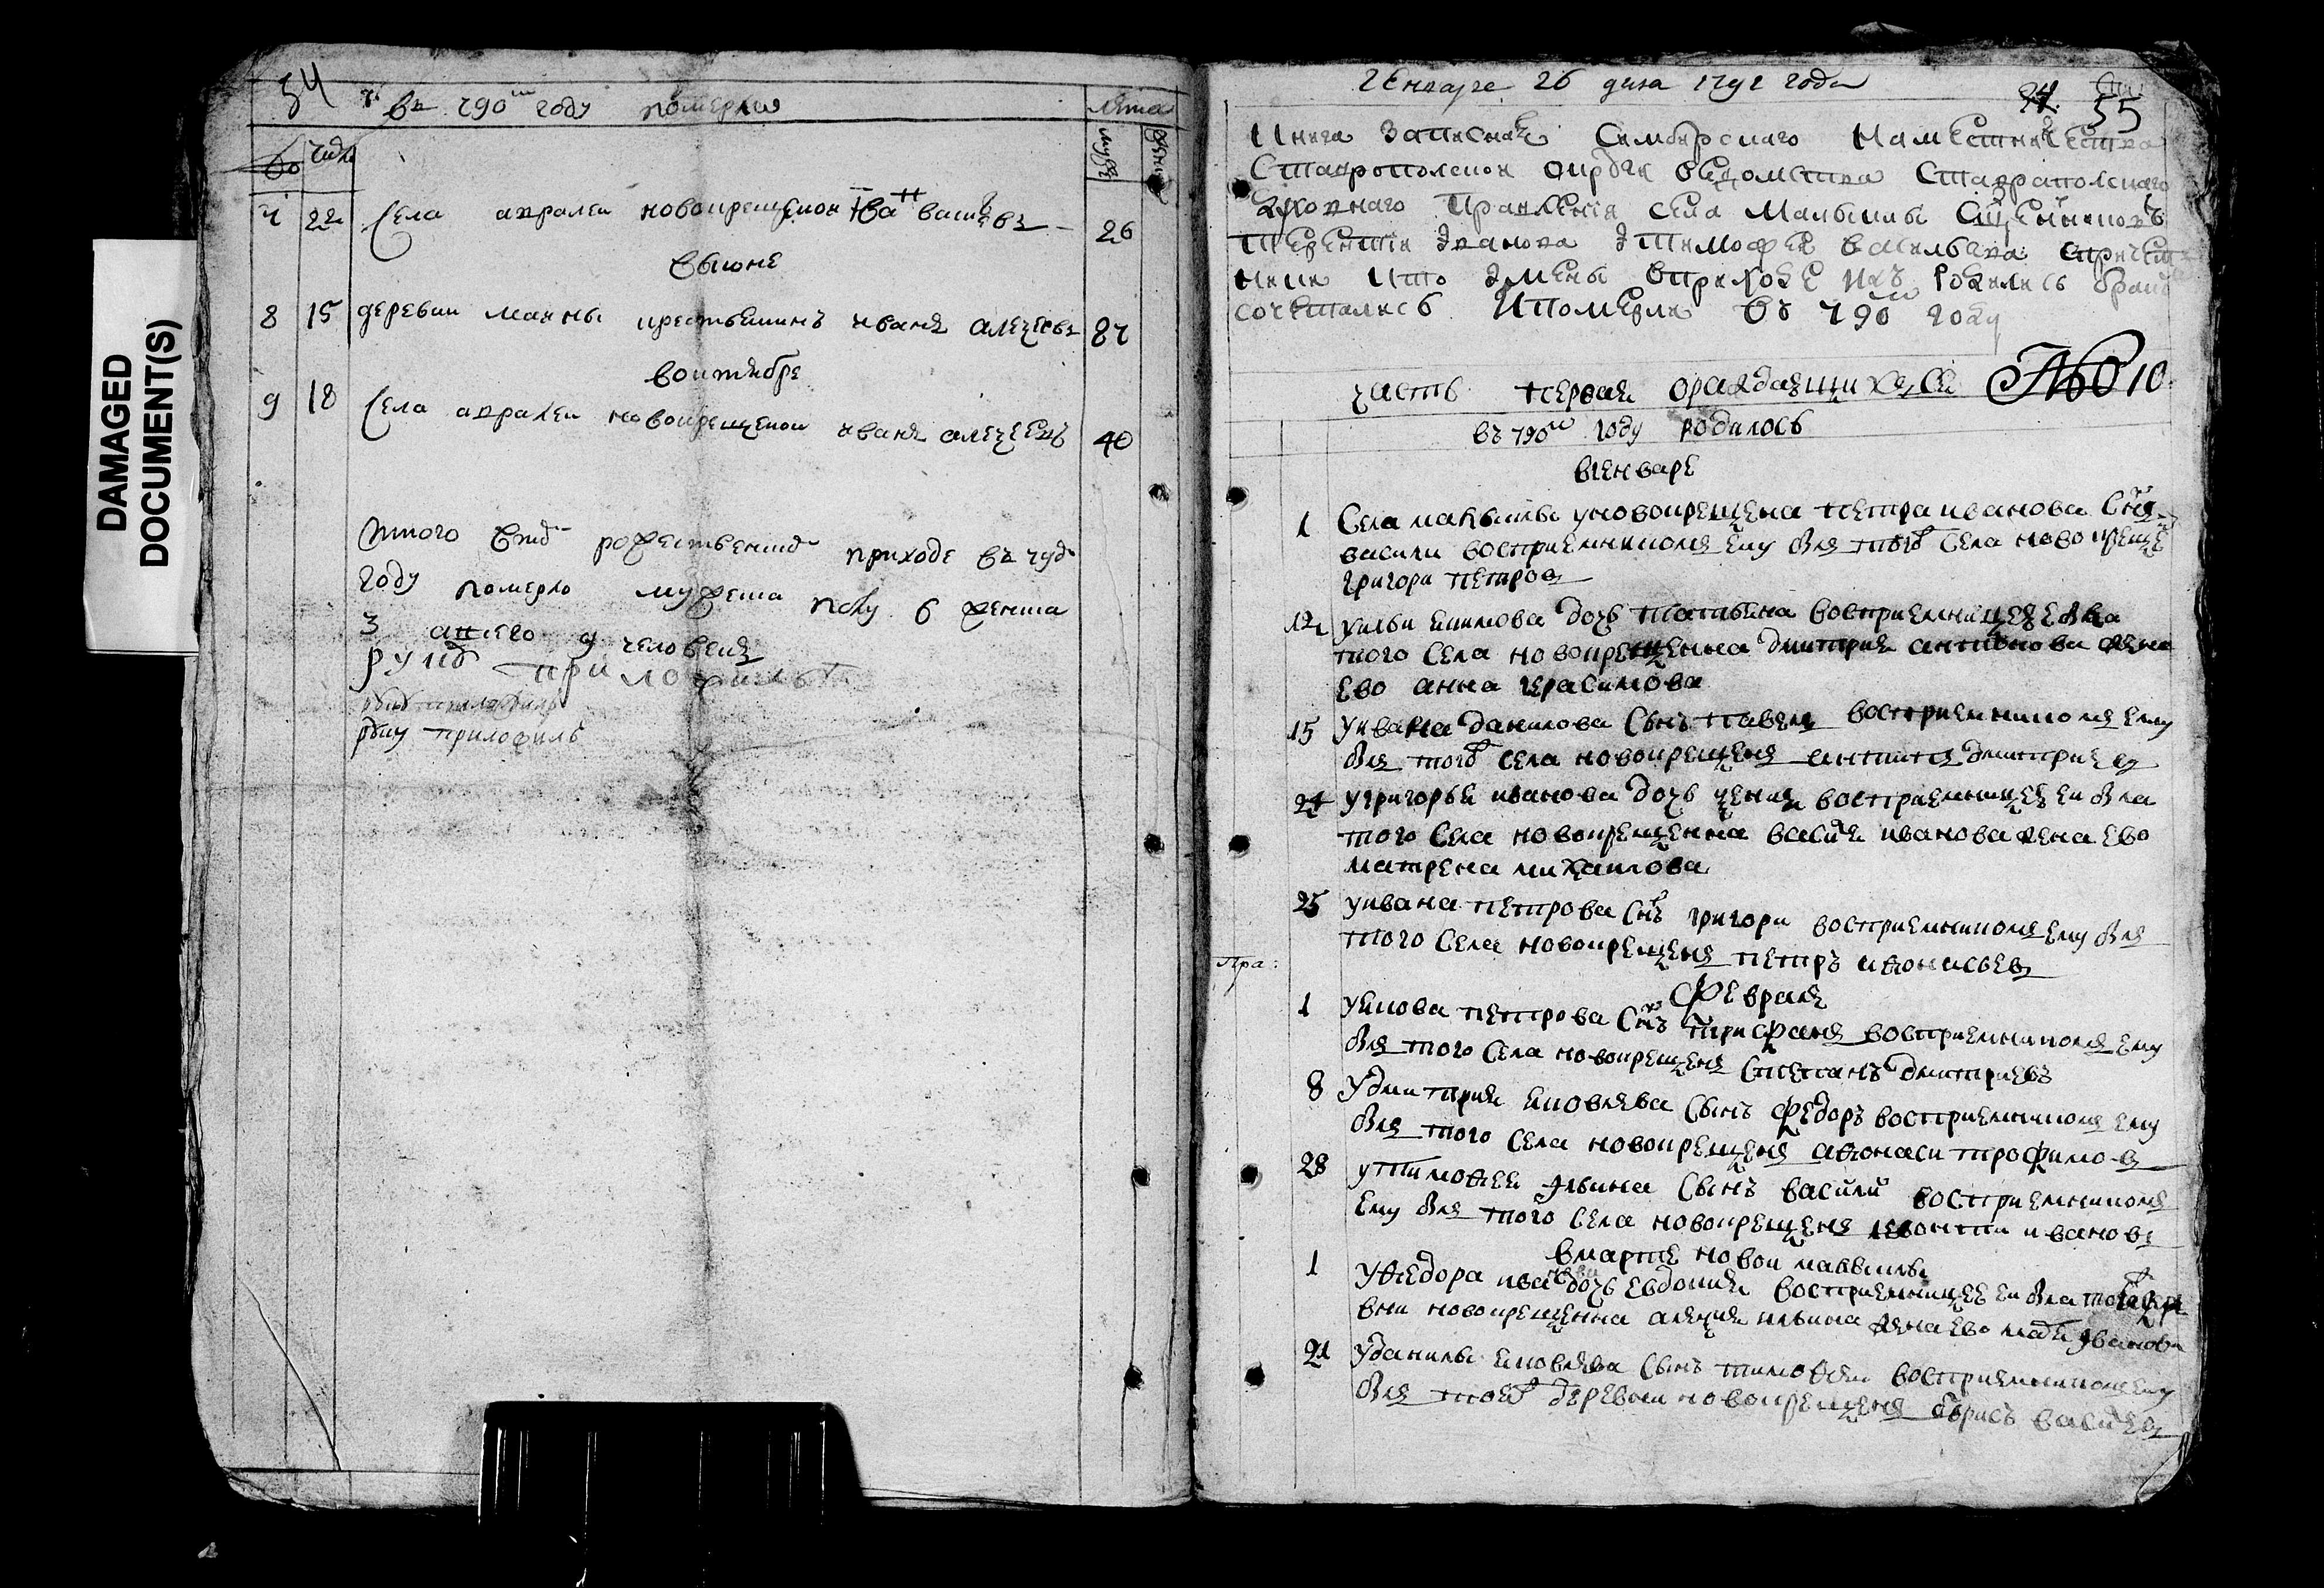 DAMAGED
DOCUMENT(S)
54
въ 790м году померли
лета
число
7 22 Села новокрещенои Иванъ 26
въ июне
8 15 деревни крестьянинъ иванъ алеѯевъ 87
в октябре
9 18 Села новокрещенои иванъ алеѯеевъ 40
году померло мужеска полу 6 женска
3 а всего 9 человекъ
руку приложилъ
руку приложилъ
руку приложилъ
генваре 26 дня 1791 года
55
Книга Записная Симбирскаго Наместничества
Ставропольской округи ведомства Ставропольскаго
Духовнаго Правления села Священниковъ
Терентия Иванова Тимофея Васильева
Кто Имены в приходе ихъ родились браком
сочетались И померли въ 790м году
часть первая о раждающихся № 10
въ 790м году родилось
в генваре
1 Села у новокрещена петра иванова Снъ
васили восприемникомъ ему былъ того Села новокреще
григори петров
12 у ильи дочь татьяна восприемницею была
того Села новокрещенна дмитрия антонова жена
ево анна герасимова
15 у ивана данилова Сынъ павелъ восприемникомъ ему
былъ того Села новокрещенъ антипъ дмитриев
24 у григорья иванова дочь восприемницею еи была
того Села новокрещенна василья иванова жена ево
матрена михаилова
25 у ивана петрова Снъ григори восприемникомъ ему былъ
того Села новокрещенъ петръ афонасьев
Пра:
Февраля
1 у якова петрова Снъ трифанъ восприемникомъ ему
былъ того Села новокрещенъ Степанъ дмитриевъ
8 у дмитрия яковлева Сынъ федоръ восприемникомъ ему
былъ того Села новокрещенъ афонаси трофимов
28 у тимофея ильина Сынъ василий восприемникомъ
ему былъ того Села новокрещенъ левонти ивановъ
в марте новои
1 у федора иванова дочь евдокия восприемницею еи была тои дере
вни новокрещенна ильина жена ево иванова
21 у данилы яковлева Сынъ тимофеи восприемникомъ ему
былъ тои деревни новокрещенъ борисъ васильев